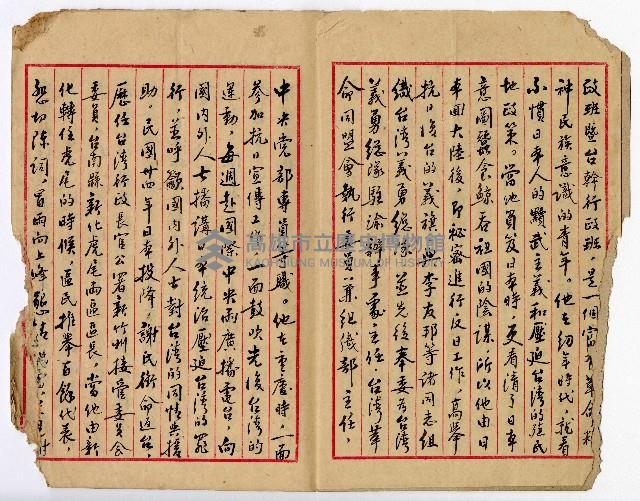 政班暨台幹行政班，是一個富有革命精
神民族意識的青年。他在幼年時代，就看
不慣日本人的黷武主義和壓迫台灣的殖民
地政策。當他負笈日本時，更看清了日本
意圖蠶食鯨吞祖國的陰謀，所以他由日
本回大陸後，即秘密進行反日工作，高舉
抗日復台的義旗，與李友邦等諸同志組
織台灣義勇總隊，並先後奉委為台灣
義勇總隊駐渝辦事處主任，台灣革
命同盟會執行委員兼組織部主任，
中央党部專員職。他在重慶時，一面
參加抗日宣傳工作，一面鼓吹光復台灣的
運動，每週赴國際中央兩廣播電台，向
國內外人士播講日本統治壓迫台灣的罪
行，並呼籲國內外人士對台灣的同情與援
助。民國卅四年日本投降，謝氏銜命返台，
歷任台灣行政長官公署新竹州接管委員會
委員，台南縣新化虎尾兩區區長，當他由新
化轉任虎尾的時候，區民推舉百餘代表，
懇切陳詞，冒雨向上峰懇
高雄市立歷史博物館
KAOHSIUNG MUSEUM OF HISTORY